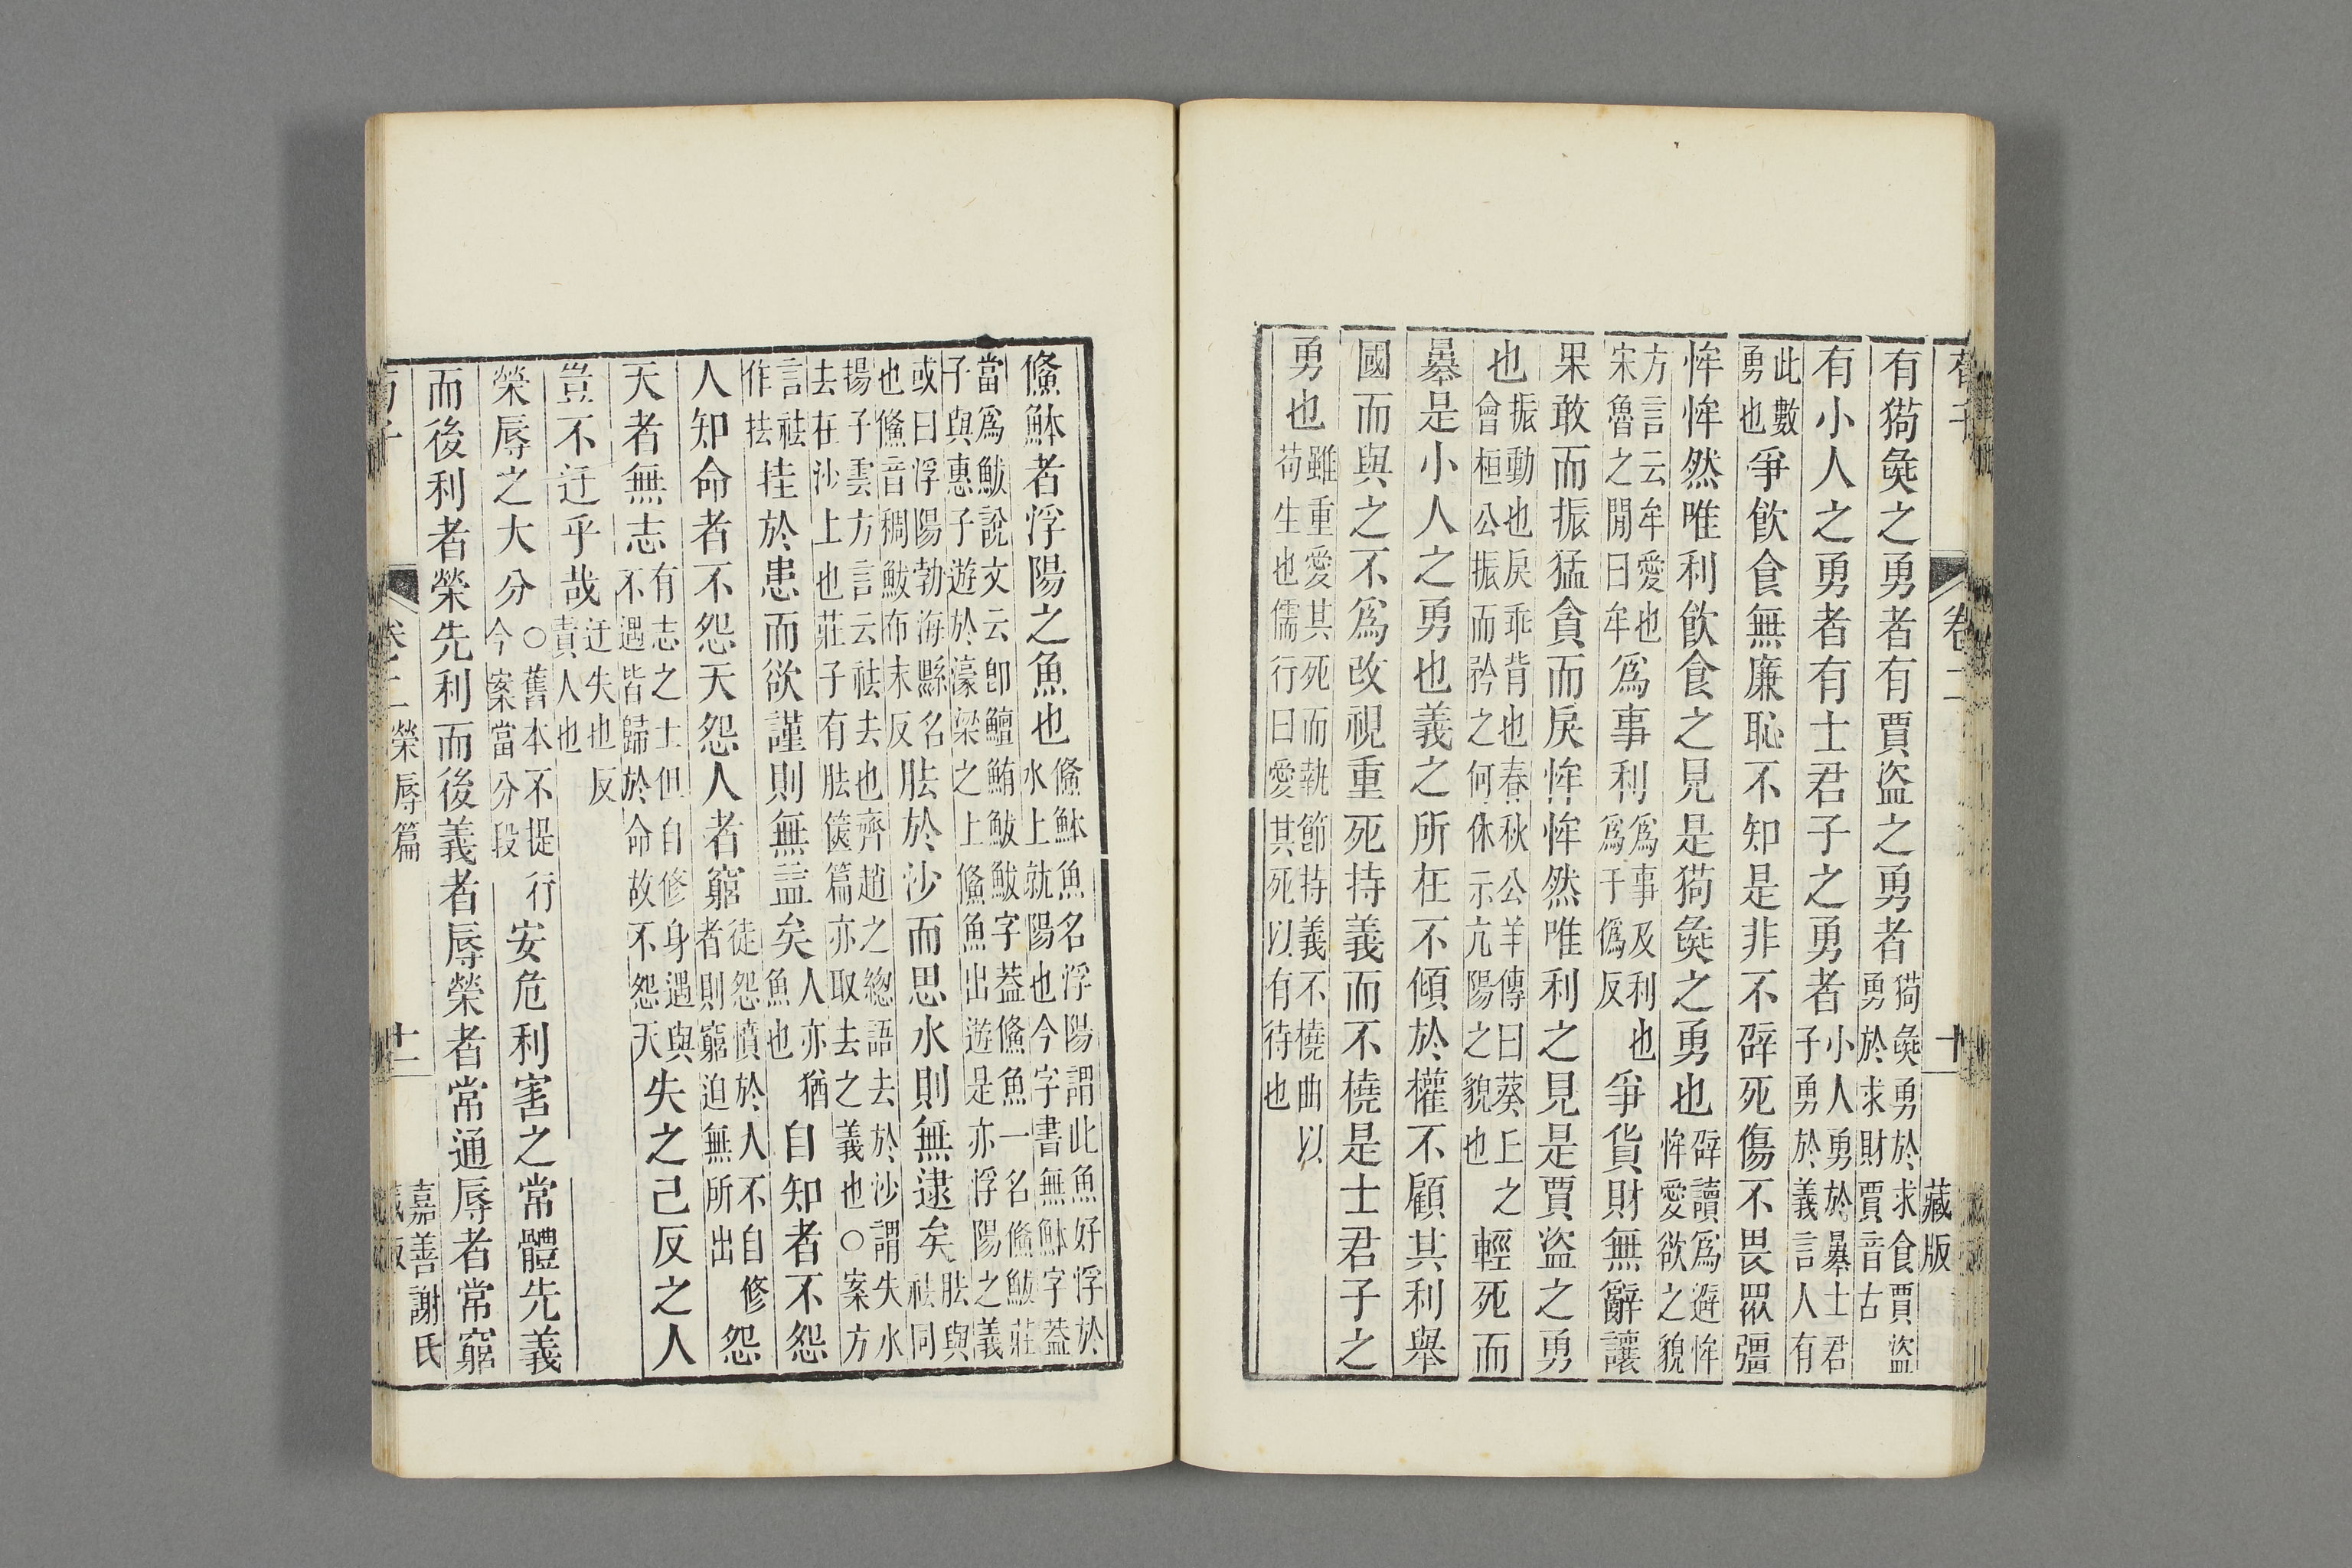 荀子 卷二 十 藏版
有狗彘之勇者有賈盜之勇者狗彘勇於求食賈盜勇於求財賈音古
有小人之勇者有士君子之勇者小人勇於暴士君子勇於義言人有
此數勇也爭飮食無廉恥不知是非不辟死傷不畏眾彊
恈恈然唯利飮食之見是狗彘之勇也辟讀爲避恈恈愛欲之貌
方言云牟愛也宋魯之閒曰牟爲事利爲事及利也爲于僞反爭貨財無辭讓
果敢而振猛貪而戾恈恈然唯利之見是賈盜之勇
也振動也戾乖背也春秋公羊傳曰葵丘之會桓公振而矜之何休云亢陽之貌也輕死而
暴是小人之勇也義之所在不傾於權不顧其利舉
國而與之不爲改視重死持義而不橈是士君子之
勇也雖重愛其死而執節持義不橈曲以苟生也儒行曰愛其死以有待也
鯈䱁者浮陽之魚也鯈䱁魚名浮陽謂此魚好浮於水上就陽也今字書無䱁字葢
當爲鮁說文云卽鱣鮪鮁鮁字葢鯈魚一名鯈鮁莊子與惠子遊於濠梁之上鯈魚出遊是亦浮陽之義
或曰浮陽勃海縣名也鯈音稠鮁布末反胠於沙而思水則無逮矣胠與祛同
揚子雲方言云祛去也齊趙之總語去於沙謂失水去在沙上也莊子有胠篋篇亦取去之義也○案方
言祛作抾挂於患而欲謹則無益矣人亦猶魚也自知者不怨
人知命者不怨天怨人者窮徒怨憤於人不自修者則窮迫無所出怨
天者無志有志之士但自修身遇與不遇皆歸於命故不怨天失之己反之人
豈不迂乎哉迂失也反責人也
榮辱之大分○舊本不提行今案當分段安危利害之常體先義
而後利者榮先利而後義者辱榮者常通辱者常窮
荀子 卷二榮辱篇 十一 嘉善謝氏藏版